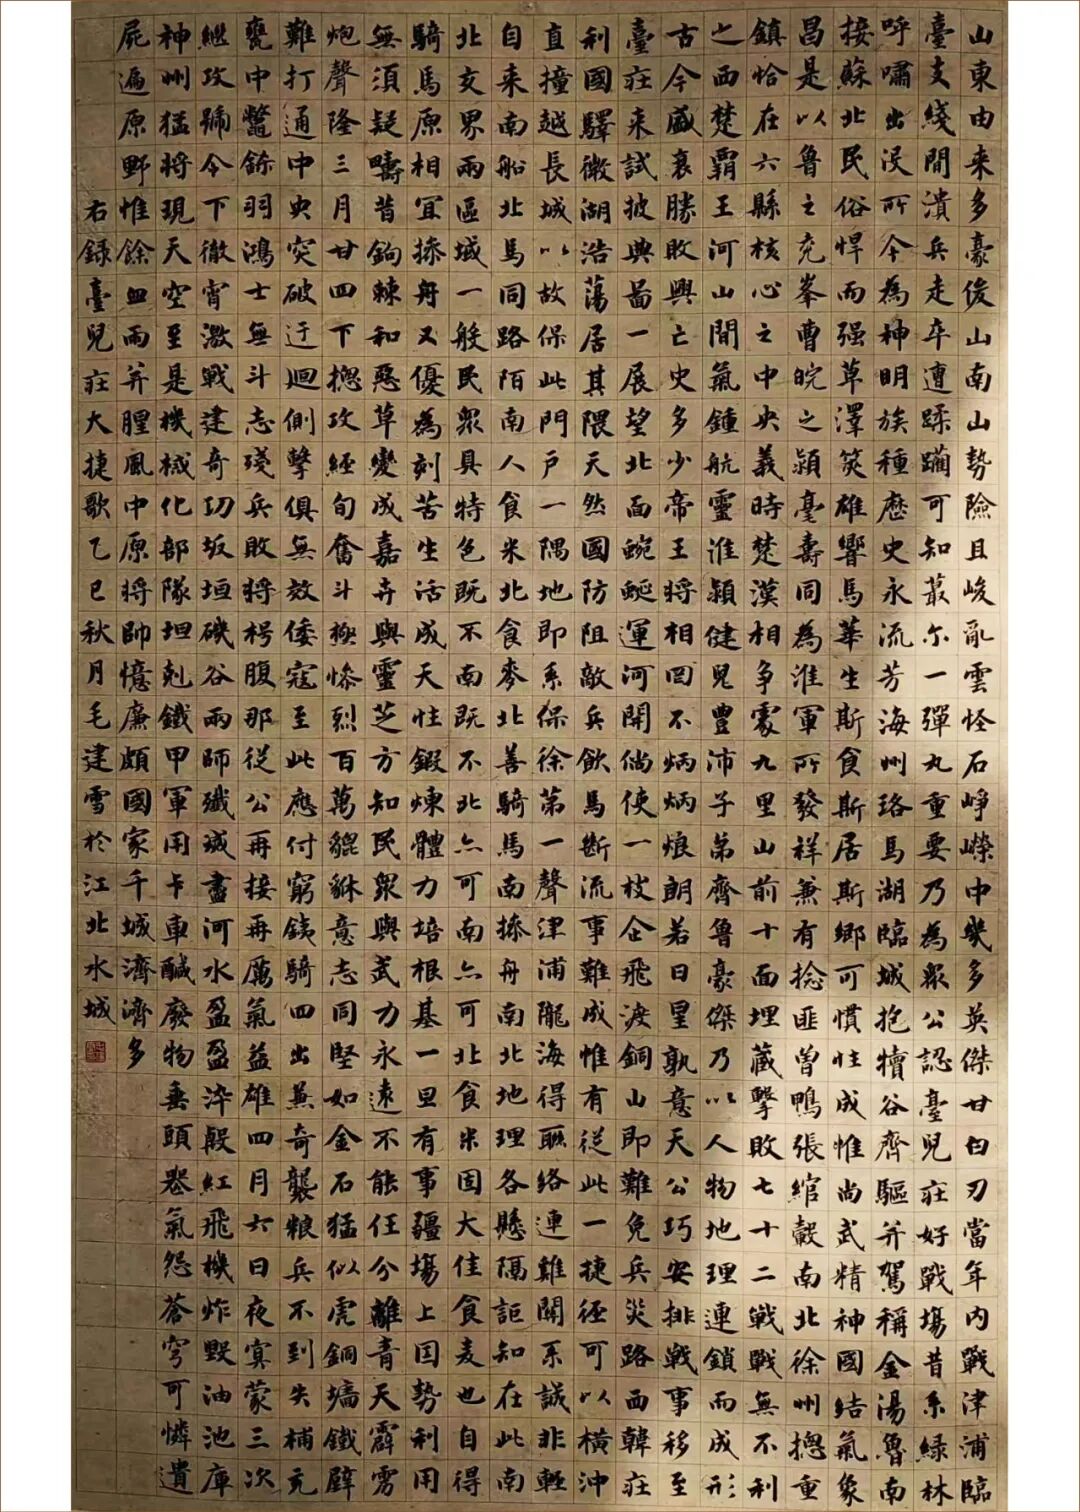 山東由来多豪俊山南山勢險且峻亂雲怪石崢嶸中幾多英傑甘白刃當年内戰津浦臨
臺支綫間潰兵走卒遭蹂躪可知蕞尔一彈丸重要乃為衆公認臺兒莊好戰場昔系綠林
呼嘯出没所今為神明族種歷史永流芳海州珞馬湖臨城抱犢谷齊驅并駕稱金湯魯南
接蘇北民俗悍而强草澤英雄響馬華生斯食斯居斯鄉可慣性成惟尚武精神國結氣象
昌是以魯之兖峯曹皖之潁亳壽同為淮軍所發祥兼有捻匪曾鴨張綰轂南北徐州揔重
鎮恰在六縣核心之中央義時楚漢相争處九里山前十面埋藏擊敗七十二戰戰無不利
之西楚霸王河山間氣鍾航靈淮潁健兒豊沛子弟齊魯豪傑乃以人物地理連鎖而成形
古今盛衰勝敗興亡史多少帝王將相罔不炳炳烺朗若日星孰意天公巧安排戰事移至
臺莊来試披輿啚一展望北面蜿蜒運河開倘使一枝企飛渡銅山即難免兵災路西韓莊
利國驛微湖浩蕩居其隈天然國防阻敵兵飲馬斷流事難成惟有從此一捷徑可以橫沖
直撞越長城以故保此門户一隅地即系保徐第一聲津浦隴海得聯絡連雞關系誠非輕
自来南船北馬同路陌南人食米北食麥北善騎馬南捺舟南北地理各懸隔詎知在此南
北支界兩區域一般民衆具特色既不南既不北亦可南亦可北食米固大佳食麦也自得
騎馬原相宜捺舟又優為刻苦生活成天性鍛煉體力培根基一旦有事疆場上因勢利用
無須疑疇昔鉤棘和惡草變成嘉卉與靈芝方知民衆與武力永遠不能任分離青天霹雳
炮聲隆三月廿四下揔攻經旬奮斗極惨烈百萬貔貅意志同堅如金石猛似虎銅墻鐵壁
難打通中央突破迂迴側擊俱無效倭寇至此應付窮銕騎四出兼奇襲粮兵不到失補充
甕中鱉餘羽鴻士無斗志殘兵敗將枵腹那從公再接再厲氣益雄四月六日夜寘蒙三次
継攻號令下徹宵激戰建奇功坂垣磯谷兩師殲滅盡河水盈盈淬殷紅飛機炸毀油池庫
神州猛将現天空至是機械化部隊坦剋鐵甲軍用卡車鹹廢物垂頭喪氣怨蒼穹可憐遺
屍遍原野惟餘血雨并腥風中原將帥憶廉頗國家千城濟濟多
右録臺兒莊大捷歌乙巳秋月毛建雪於江北水城